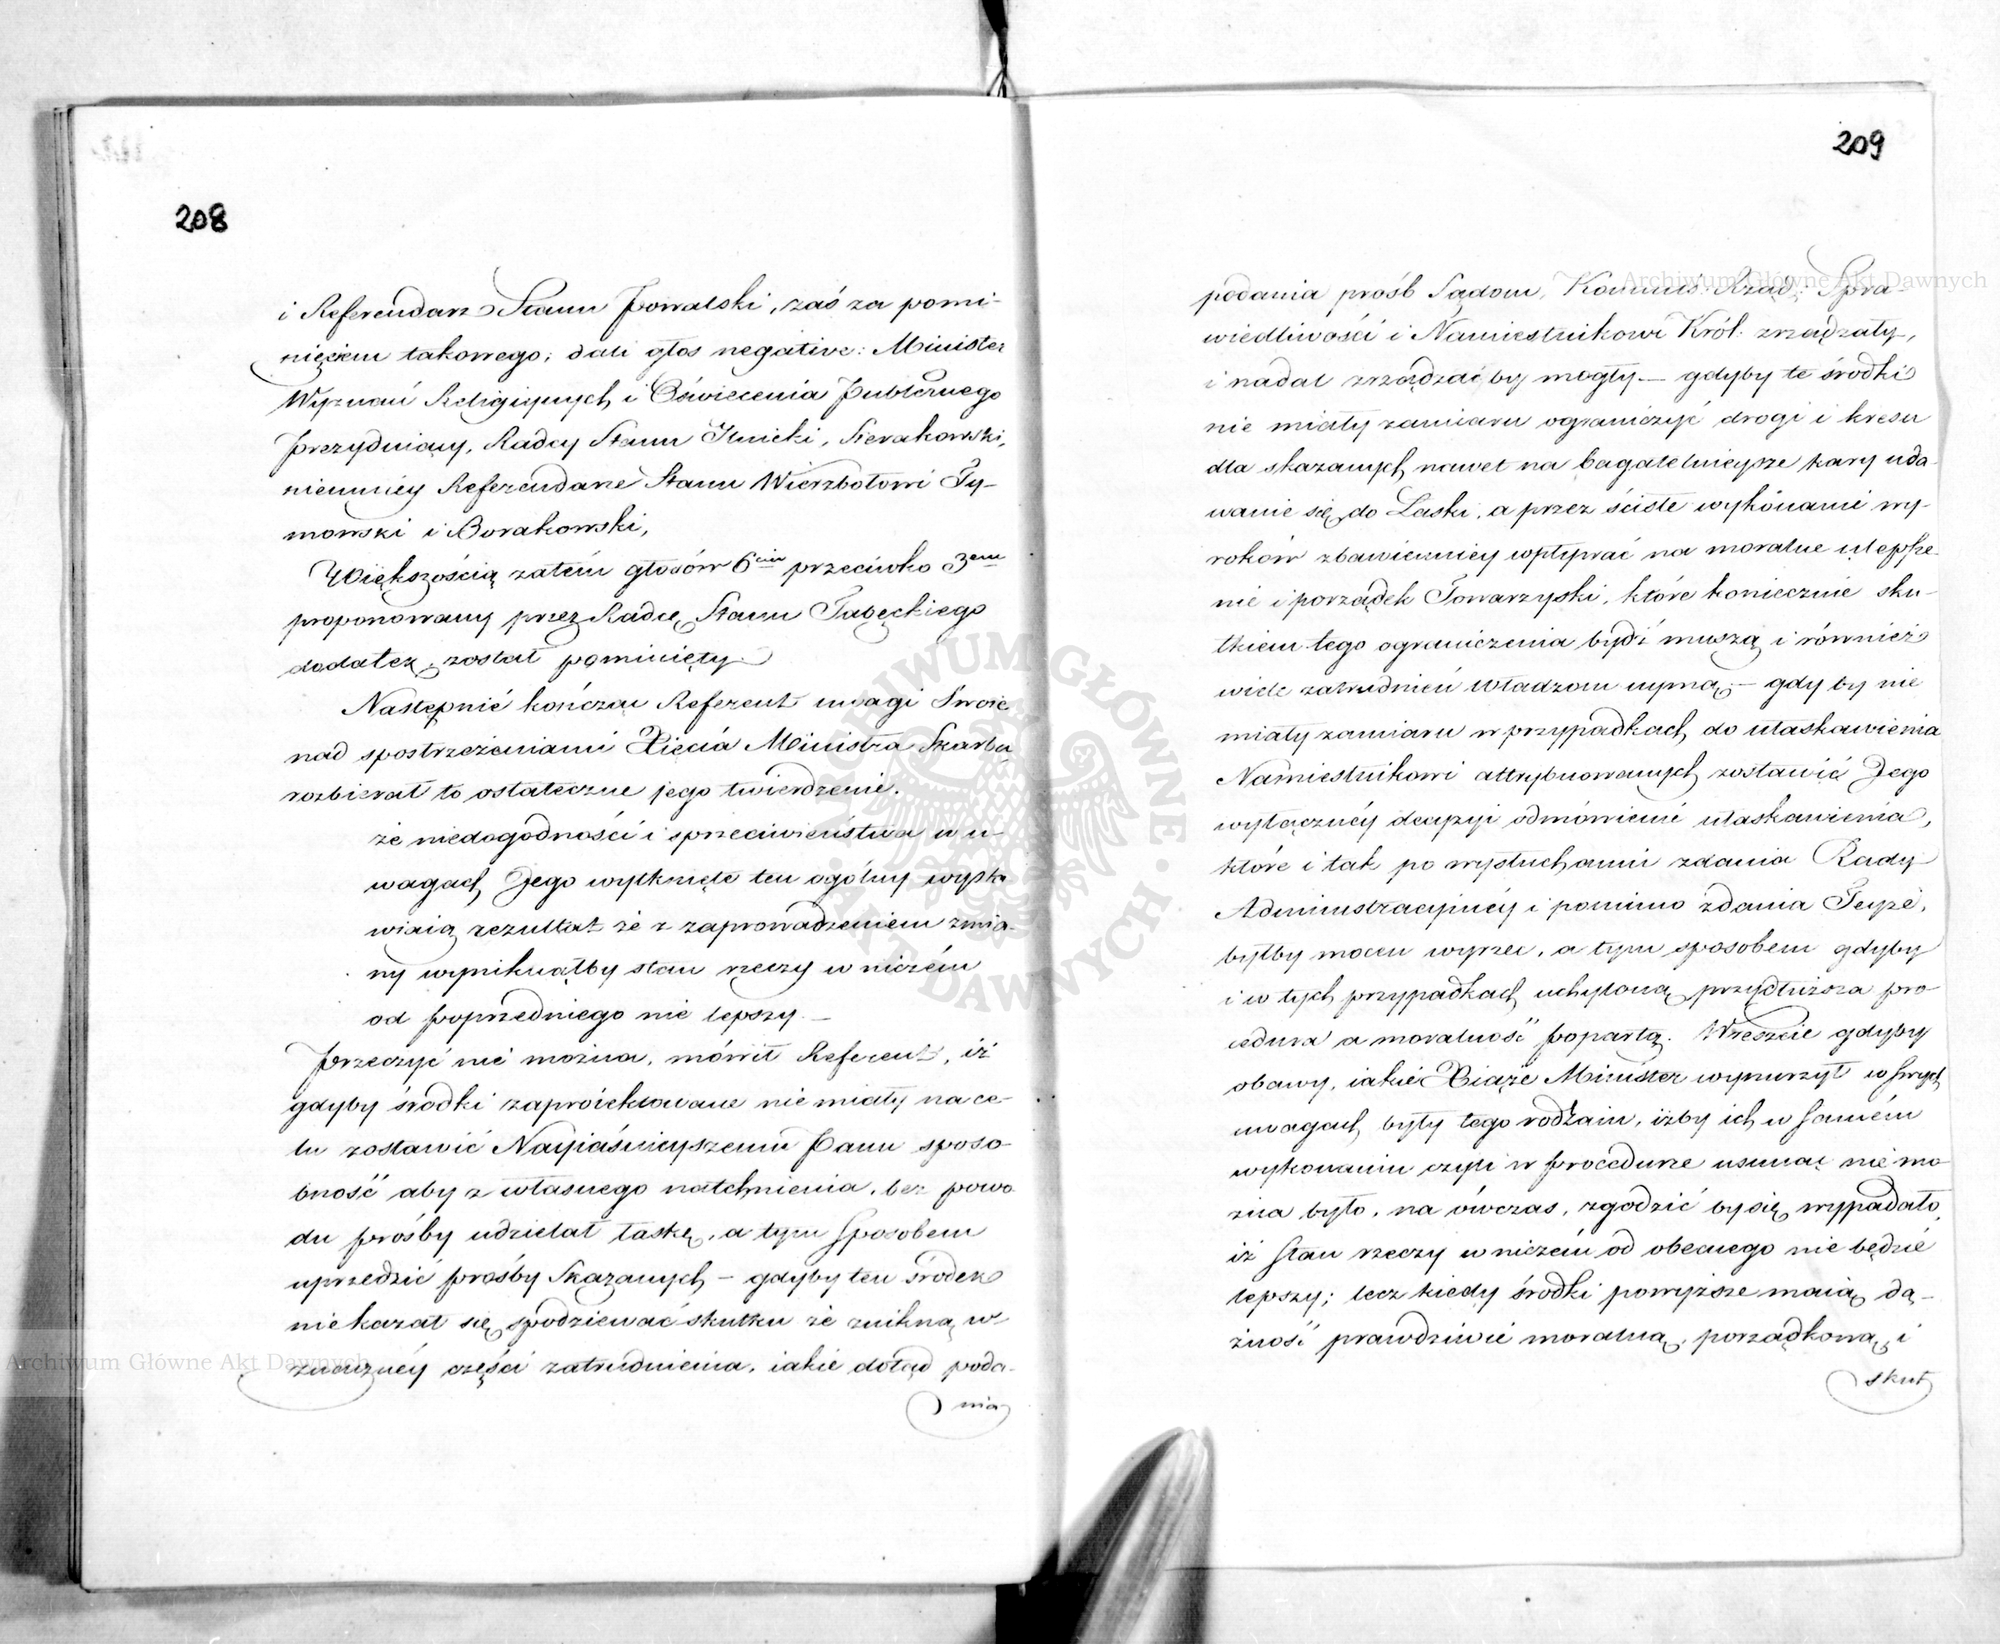 208
i Referendarz Stanu Powalski, zaś za pomi-
nięciem takowego; dali głos negative: Minister
Wyznań Religijnych i Oświecenia Publicznego
prezyduiący, Radcy Stanu Ilnicki, Sierakowski,
niemniey Referendarze Stanu Wierzbołowi Ty-
mowski i Borakowski,
Większością zatém głosów 6ciu przeciwko 3em
proponowany przez Radcę Stanu Gałęckiego
dodatek, został pominięty.
Następnie kończąc Referent uwagi Swoie
nad spostrzeżeniami Xięcia Ministra Skarbu,
rozbierał to ostateczne jego twierdzenie.
że niedogodności i sprzeciwieństwa w u-
wagach Jego wytknięte ten ogólny wysta
wiaią rezultat że z zaprowadzeniem zmia-
ny wyniknąłby stan rzeczy w niczém
od poprzedniego nie lepszy. —
przeczyć nie można, mówił Referent, iż
gdyby środki zaproiektowane nie miały na ce-
lu zostawić Nayiaśnieyszemu Panu sposo-
bność aby z własnego natchnienia, bez powo
du prośby udzielał łaskę, a tym Sposobem
uprzedzić prośby Skazanych — gdyby ten środek
nie kazał się spodziewać skutku że znikną w
znaczney części zatrudnienia, iakie dotąd poda-
nia
209
podania prośb Sądom, Kommis: Rząd: Spra
wiedliwości i Namiestnikowi Król: zrządzały,
i nadal zrządzać by mogły — gdyby te środki
nie miały zamiaru ograniczyć drogi i kresu
dla skazanych nawet na bagatelnieysze kary uda-
wanie się do Łaski, a przez ściste wykonanie wy-
roków zbawienniey wpłynąć na moralne ulepsze-
nie i porządek Towarzyski, które koniecznie sku-
tkiem tego ograniczenia bydź muszą i również
wiele zatrudnień Władzom uymą; — gdy by nie
miały zamiaru w przypadkach do ułaskawienia
Namiestnikowi attrybuowanych zostawić Jego
wyłączney decyzyi odmówienie ułaskawienia,
które i tak po wysłuchaniu zdania Rady
Administracyiney i pomimo zdania Teyże,
byłby mocen wyrzec, a tym sposobem gdyby
i w tych przypadkach uchyloną przydłuższa pro
cedura a moralność popartą. Wreszcie gdyby
obawy, iakie Xiąże Minister wynurzył w swych
uwagach były tego rodzaiu, iżby ich w samém
wykonaniu czyli w procedurze usunąć nie mo
żna było, na ówczas, zgodzić by się wypadało,
iż stan rzeczy w niczém od obecnego nie będzie
lepszy; lecz kiedy środki powyższe maią dą-
żność prawdziwie moralną, porządkową i
skut
Archiwum Główne Akt Dawnych
Archiwum Główne Akt Dawnych
ARCHIWUM GŁÓWNE AKT DAWNYCH